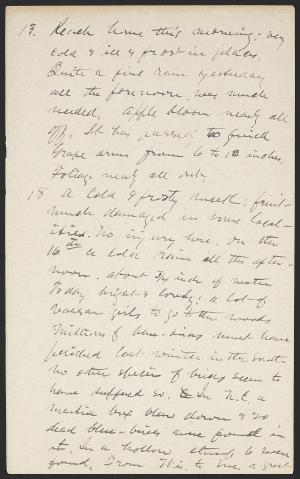 13. Reach home this morning; very
cold & ill & frost in places.
Quite a fine rain yesterday
all the forenoon, was much
needed. Apple bloom nearly all
off. It has passed to finish
Grape arms from 6 to 10 inches,
Foliage nearly all out.
18 A cold & frosty week; fruit
much damaged in some local-
ities. No injury here. On the
16th a cold rain all the after-
noon, about 3/4 inch of water
Today bright & lovely; a lot of
Vassar girls to go to the woods
Millions of blue-birds must have
perished last winter in the South
no other species of birds seem to
have suffered so. In N.C. a
martin box blew down & 20
dead blue-birds were found in
it. In a hollow stump 6 were
found. From this to me. a great